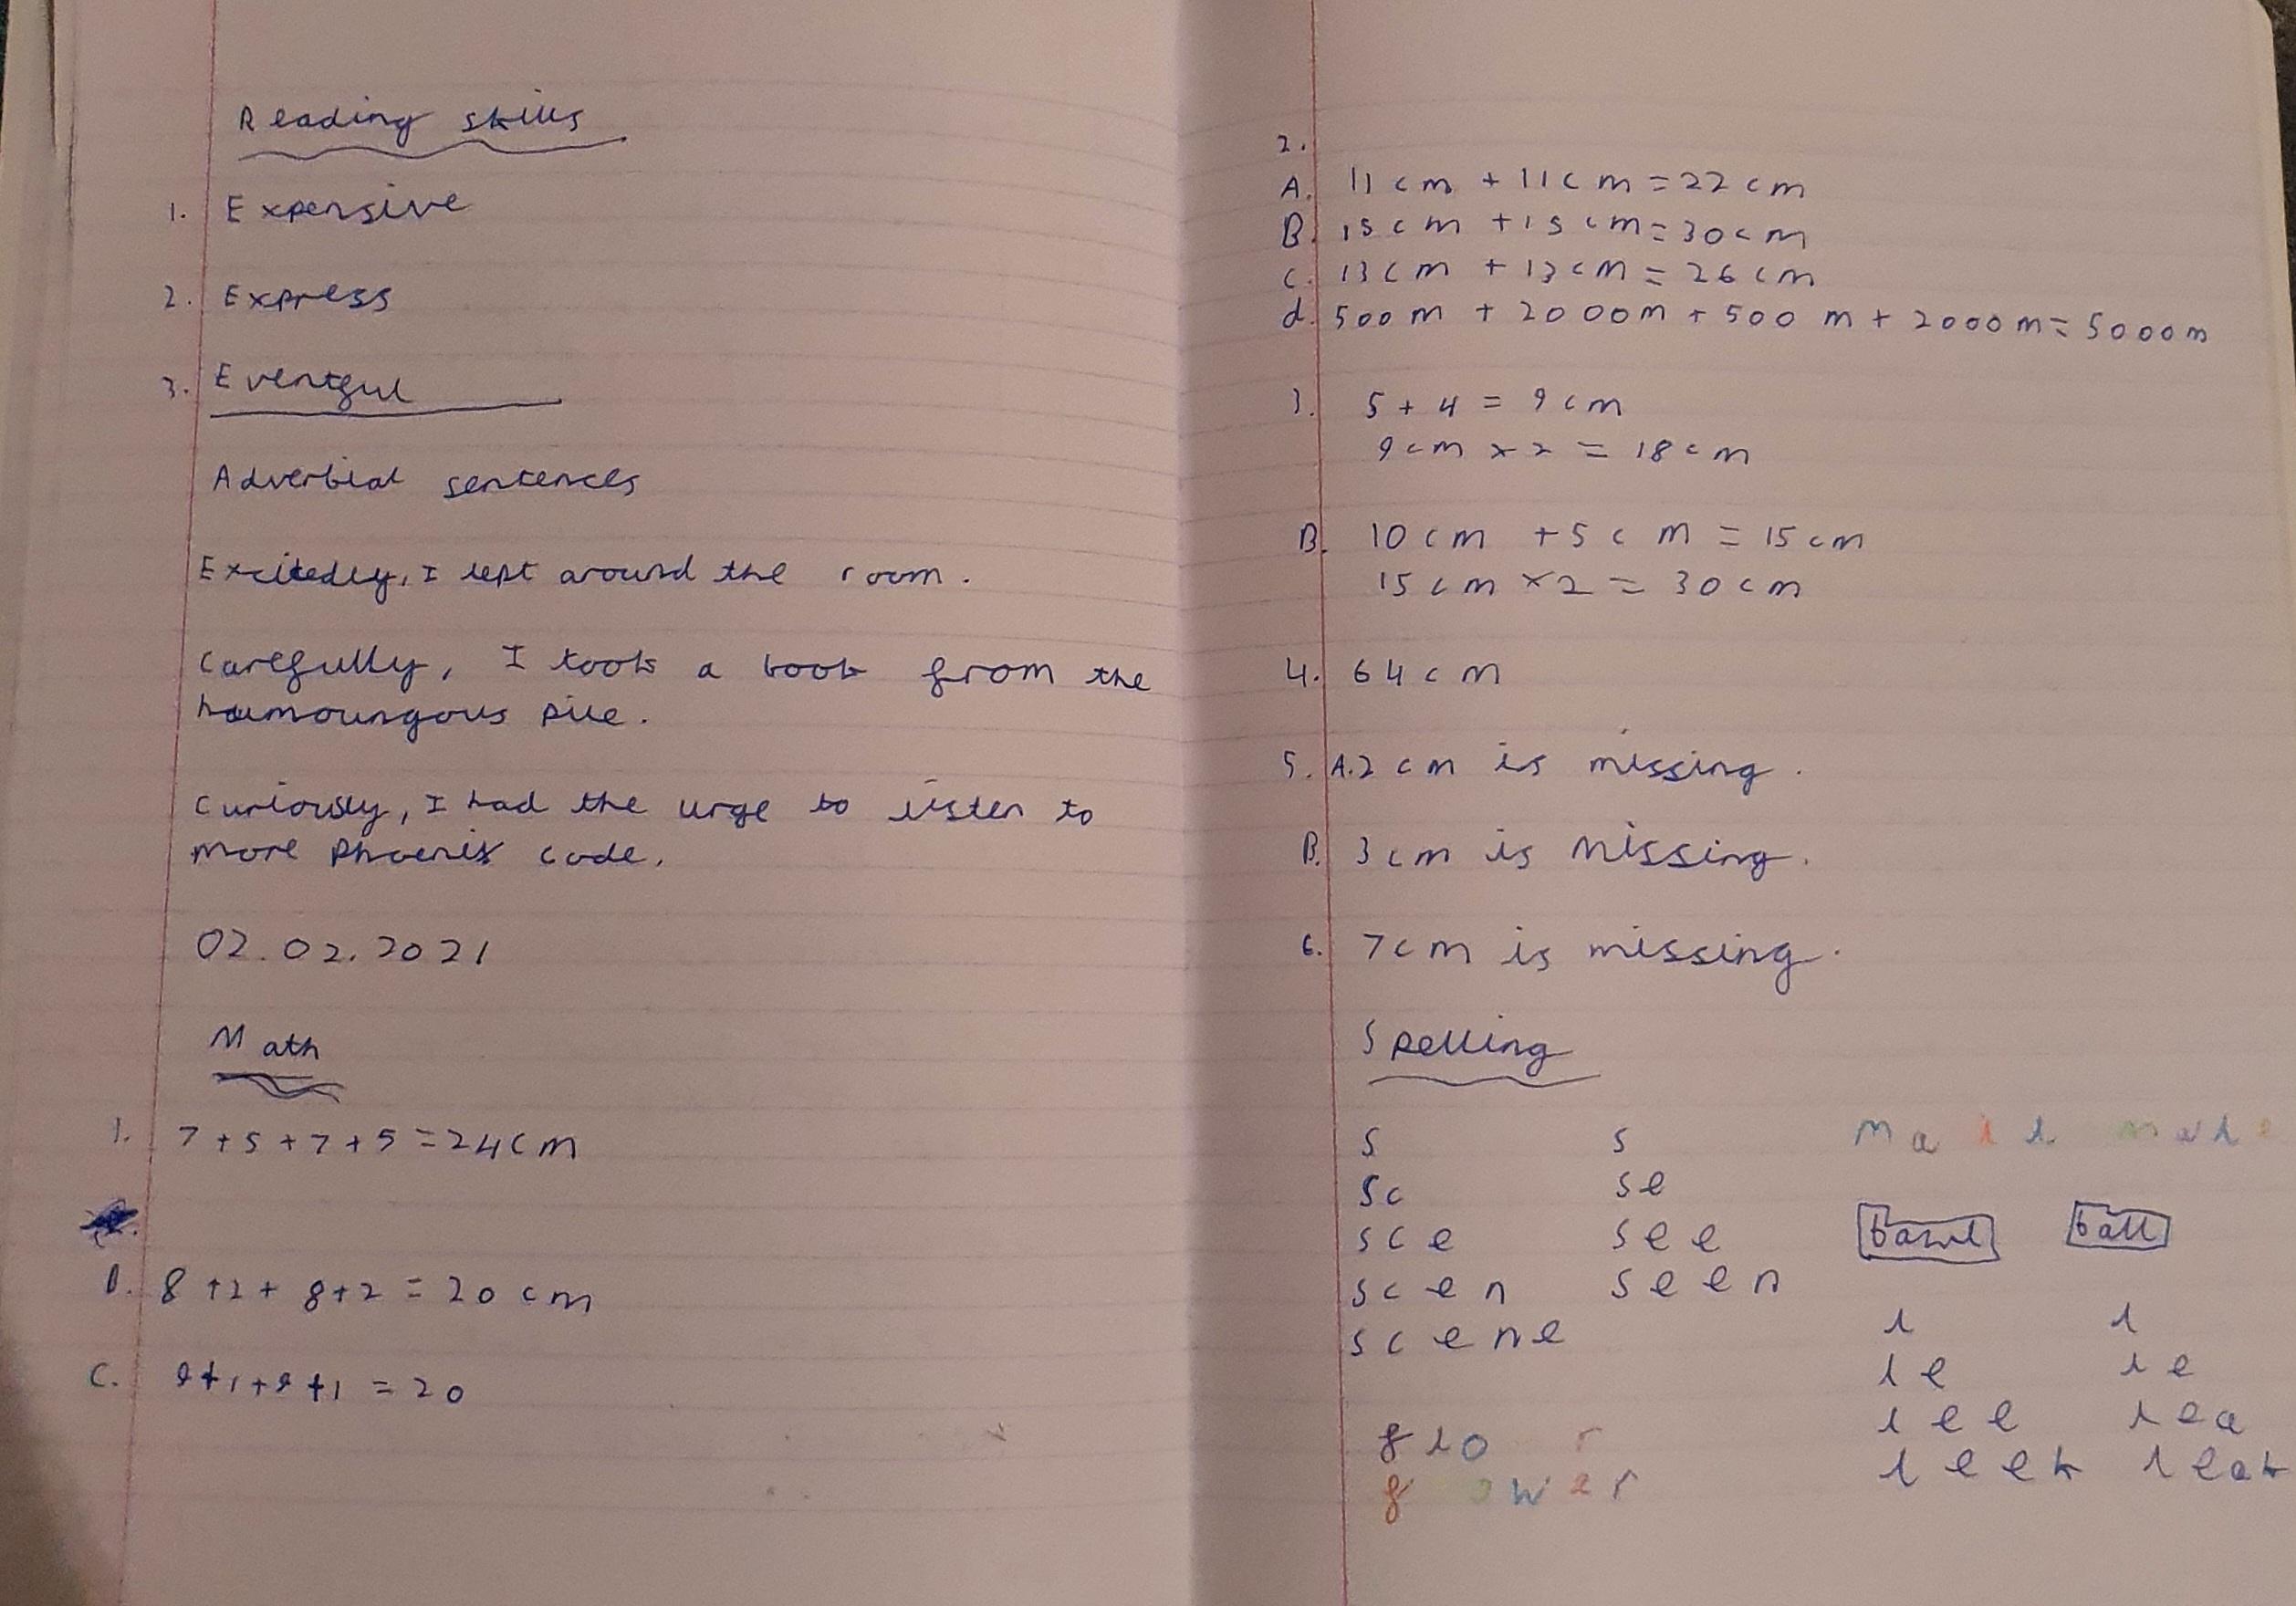 Reading skills
1. Expensive
2. Express
3. Eventful
Adverbial sentences
Excitedly, I lept around the room.
Carefully, I took a book from the
humoungous pile.
Curiously, I had the urge to listen to
more Phoenix code.
02.02.2021
Math
1. 7+5+7+5=24cm
B. 8+2+8+2=20cm
C. 9+1+9+1=20
2.
A. 11cm + 11cm=22cm
B. 15cm +15cm=30cm
C. 13cm + 13cm=26cm
d. 500m + 2000m + 500m + 2000m=5000m
3. 5+4=9cm
9cm x2=18cm
B. 10cm +5cm=15cm
15cm x2=30cm
4. 64cm
5. A.2cm is missing.
B. 3cm is missing.
6. 7cm is missing.
Spelling
s s
sc se
sce see
scen seen
scene
flo r
f ower
mail male
bawl ball
l l
le le
lee lea
leek leak